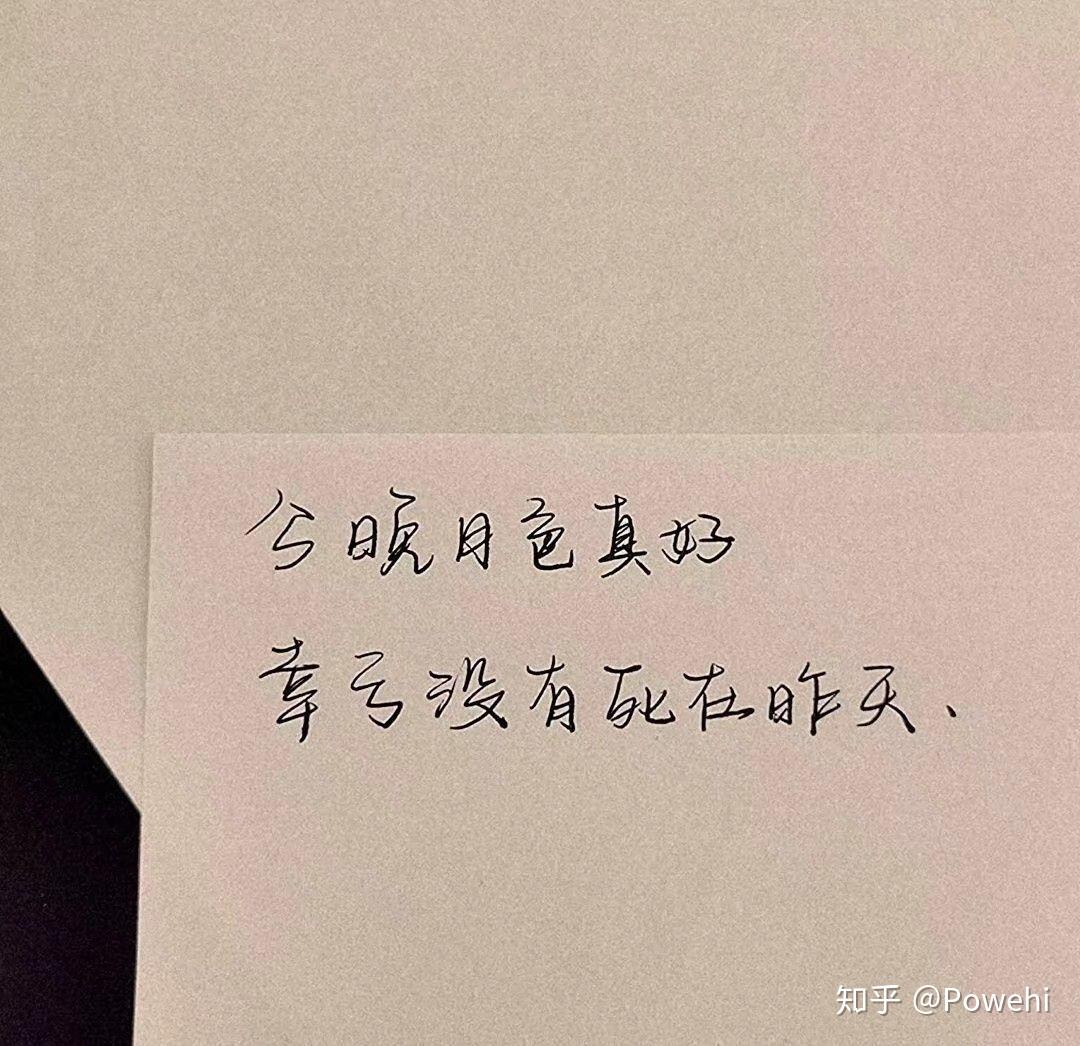 今晚月色真好
幸亏没有死在昨天、
知乎 @Powehi